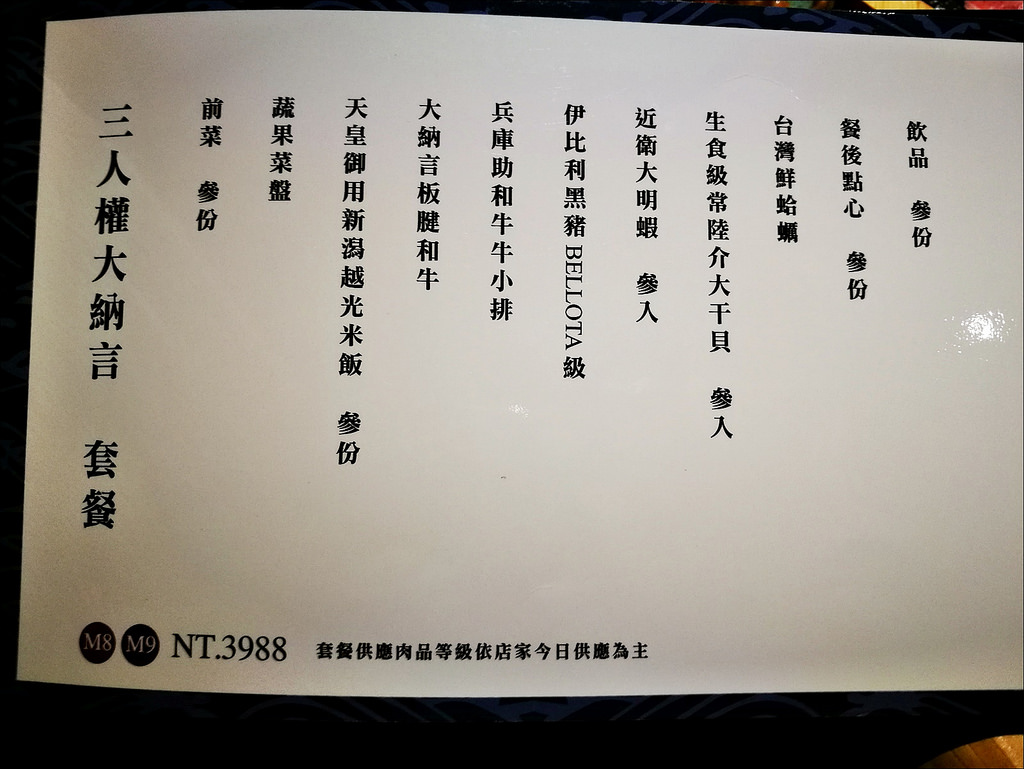 三人權大納言 套餐
前菜 參份
蔬果菜盤
天皇御用新潟越光米飯 參份
大納言板腱和牛
兵庫助和牛牛小排
伊比利黑豬BELLOTA級
近衛大明蝦 參入
生食級常陸介大干貝 參入
台灣鮮蛤蠣
餐後點心 參份
飲品 參份
M8 M9 NT.3988 套餐供應肉品等級依店家今日供應為主